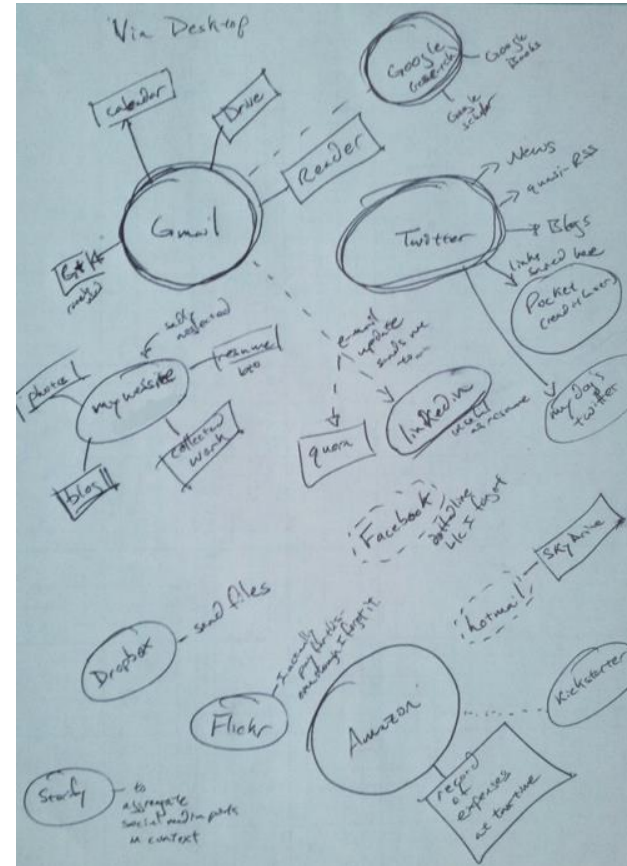 Via Desktop
Google
Google
Books
Google
scholar
calendar
Drive
Reader
Gmail
Twitter
News
quasi-RSS
Blogs
links
saved here
Pocket
(read it later)
my dog's
twitter
G+
self
neglected
my website
resume
bio
photos
blog
collected
work
e-mail
update
sends me
to...
quora
linkedin
useful
as resume
Facebook
dotted line
b/c I forget
SkyDrive
hotmail
Dropbox
send files
Flickr
I actually
pay for this-
even though I forget it
Amazon
Kickstarter
record
of
expenses
at tax time
Storify
to
aggregate
social media posts
in context